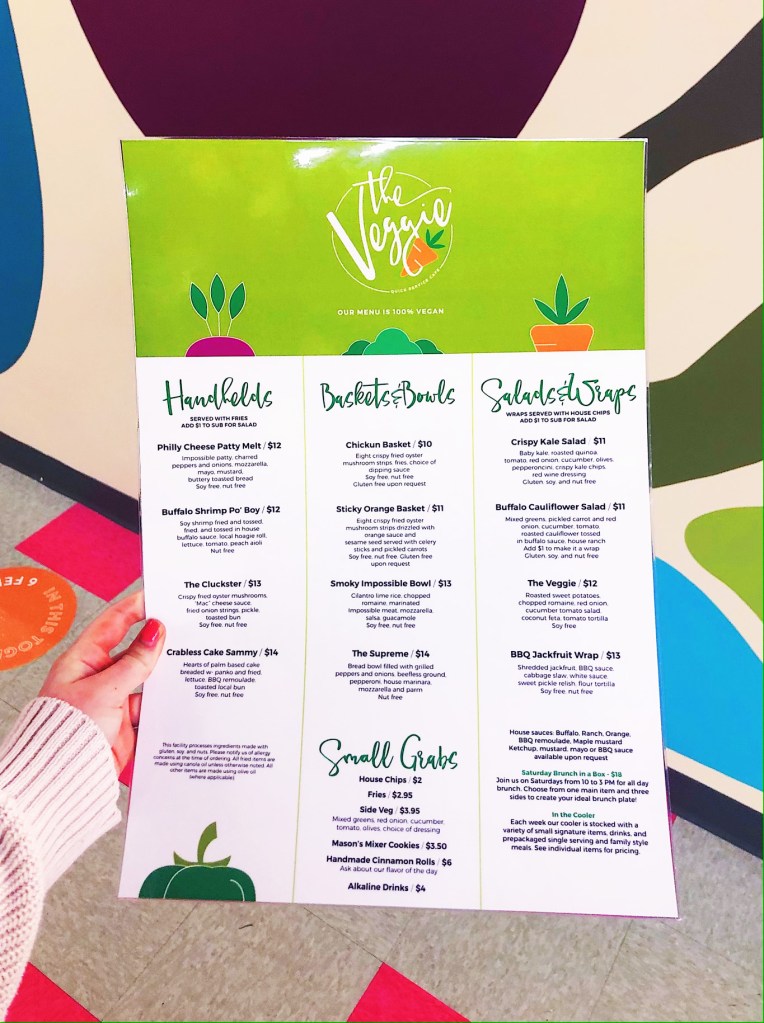 the
Veggie
QUICK SERVICE CAFE
OUR MENU IS 100% VEGAN
Handhelds
SERVED WITH FRIES
ADD $1 TO SUB FOR SALAD
Philly Cheese Patty Melt / $12
Impossible patty, charred
peppers and onions, mozzarella,
mayo, mustard,
buttery toasted bread
Soy free, nut free
Buffalo Shrimp Po' Boy / $12
Soy shrimp fried and tossed,
fried, and tossed in house
buffalo sauce, local hoagie roll,
lettuce, tomato, peach aioli
Nut free
The Cluckster / $13
Crispy fried oyster mushrooms,
"Mac" cheese sauce,
fried onion strings, pickle,
toasted bun
Soy free, nut free
Crabless Cake Sammy / $14
Hearts of palm based cake
breaded w- panko and fried,
lettuce, BBQ remoulade,
toasted local bun
Soy free, nut free
This facility processes ingredients made with
gluten, soy, and nuts. Please notify us of allergy
concerns at the time of ordering. All fried items are
made using canola oil unless otherwise noted. All
other items are made using olive oil
(where applicable).
Baskets & Bowls
Chickun Basket / $10
Eight crispy fried oyster
mushroom strips, fries, choice of
dipping sauce
Soy free, nut free
Gluten free upon request
Sticky Orange Basket / $11
Eight crispy fried oyster
mushroom strips drizzled with
orange sauce and
sesame seed served with celery
sticks and pickled carrots
Soy free, nut free, Gluten free
upon request
Smoky Impossible Bowl / $13
Cilantro lime rice, chopped
romaine, marinated
Impossible meat, mozzarella,
salsa, guacamole
Soy free, nut free
The Supreme / $14
Bread bowl filled with grilled
peppers and onions, beefless ground,
pepperoni, house marinara,
mozzarella and parm
Nut free
Small Grabs
House Chips / $2
Fries / $2.95
Side Veg / $3.95
Mixed greens, red onion, cucumber,
tomato, olives, choice of dressing
Mason's Mixer Cookies / $3.50
Handmade Cinnamon Rolls / $6
Ask about our flavor of the day
Alkaline Drinks / $4
Salads & Wraps
WRAPS SERVED WITH HOUSE CHIPS
ADD $1 TO SUB FOR SALAD
Crispy Kale Salad / $11
Baby kale, roasted quinoa,
tomato, red onion, cucumber, olives,
pepperoncini, crispy kale chips,
red wine dressing
Gluten, soy, and nut free
Buffalo Cauliflower Salad / $11
Mixed greens, pickled carrot and red
onion, cucumber, tomato,
roasted cauliflower tossed
in buffalo sauce, house ranch
Add $1 to make it a wrap
Gluten, soy, and nut free
The Veggie / $12
Roasted sweet potatoes,
chopped romaine, red onion,
cucumber tomato salad,
coconut feta, tomato tortilla
Soy free
BBQ Jackfruit Wrap / $13
Shredded jackfruit, BBQ sauce,
cabbage slaw, white sauce,
sweet pickle relish, flour tortilla
Soy free, nut free
House sauces: Buffalo, Ranch, Orange,
BBQ remoulade, Maple mustard
Ketchup, mustard, mayo or BBQ sauce
available upon request
Saturday Brunch in a Box - $18
Join us on Saturdays from 10 to 3 PM for all day
brunch. Choose from one main item and three
sides to create your ideal brunch plate!
In the Cooler
Each week our cooler is stocked with a
variety of small signature items, drinks, and
prepackaged single serving and family style
meals. See individual items for pricing.
6 FE
IN THIS TOGE